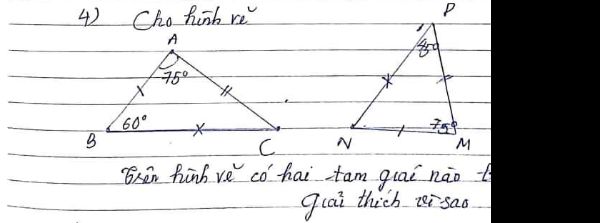 4) Cho hình vẽ
A
75°
B
60°
C
P
45°
N
75°
M
Trên hình vẽ có hai tam giác nào
Giải thích vì sao